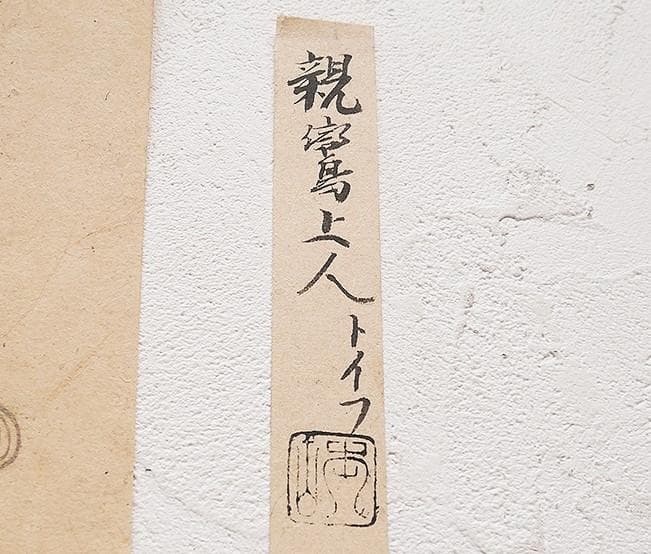 親鸞上人トイフ